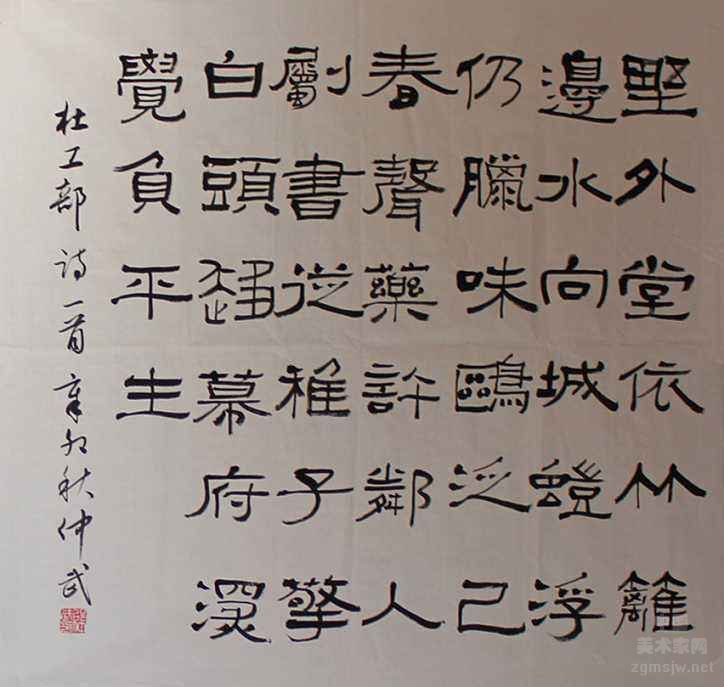 野外堂依竹籬
邊水向城螘浮
仍臘味鷗泛已
春聲藥許鄰人
劚書從稚子擎
白頭趨幕府深
覺負平生
杜工部诗一首辛卯秋仲武
美术家网
zgmsjw.net